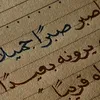 صبر صبرًا جميلًا
يرونه بعيدًا
ه قريبًا